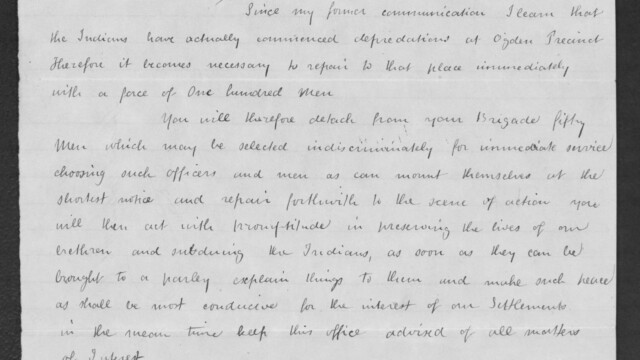 Since my former communication I learn that
the Indians have actually commenced depredations at Ogden Precinct
therefore it becomes necessary to repair to that place immediately
with a force of One hundred Men
You will therefore detach from your Brigade fifty
Men which may be selected indiscriminately for immediate service
choosing such officers and men as can mount themselves at the
shortest notice and repair forthwith to the scene of action you
will then act with promptitude in preserving the lives of our
brethren and subduing the Indians, as soon as they can be
brought to a parley explain things to them and make such peace
as shall be most conducive for the interest of our Settlements
in the mean time keep this office advised of all matters
of Interest